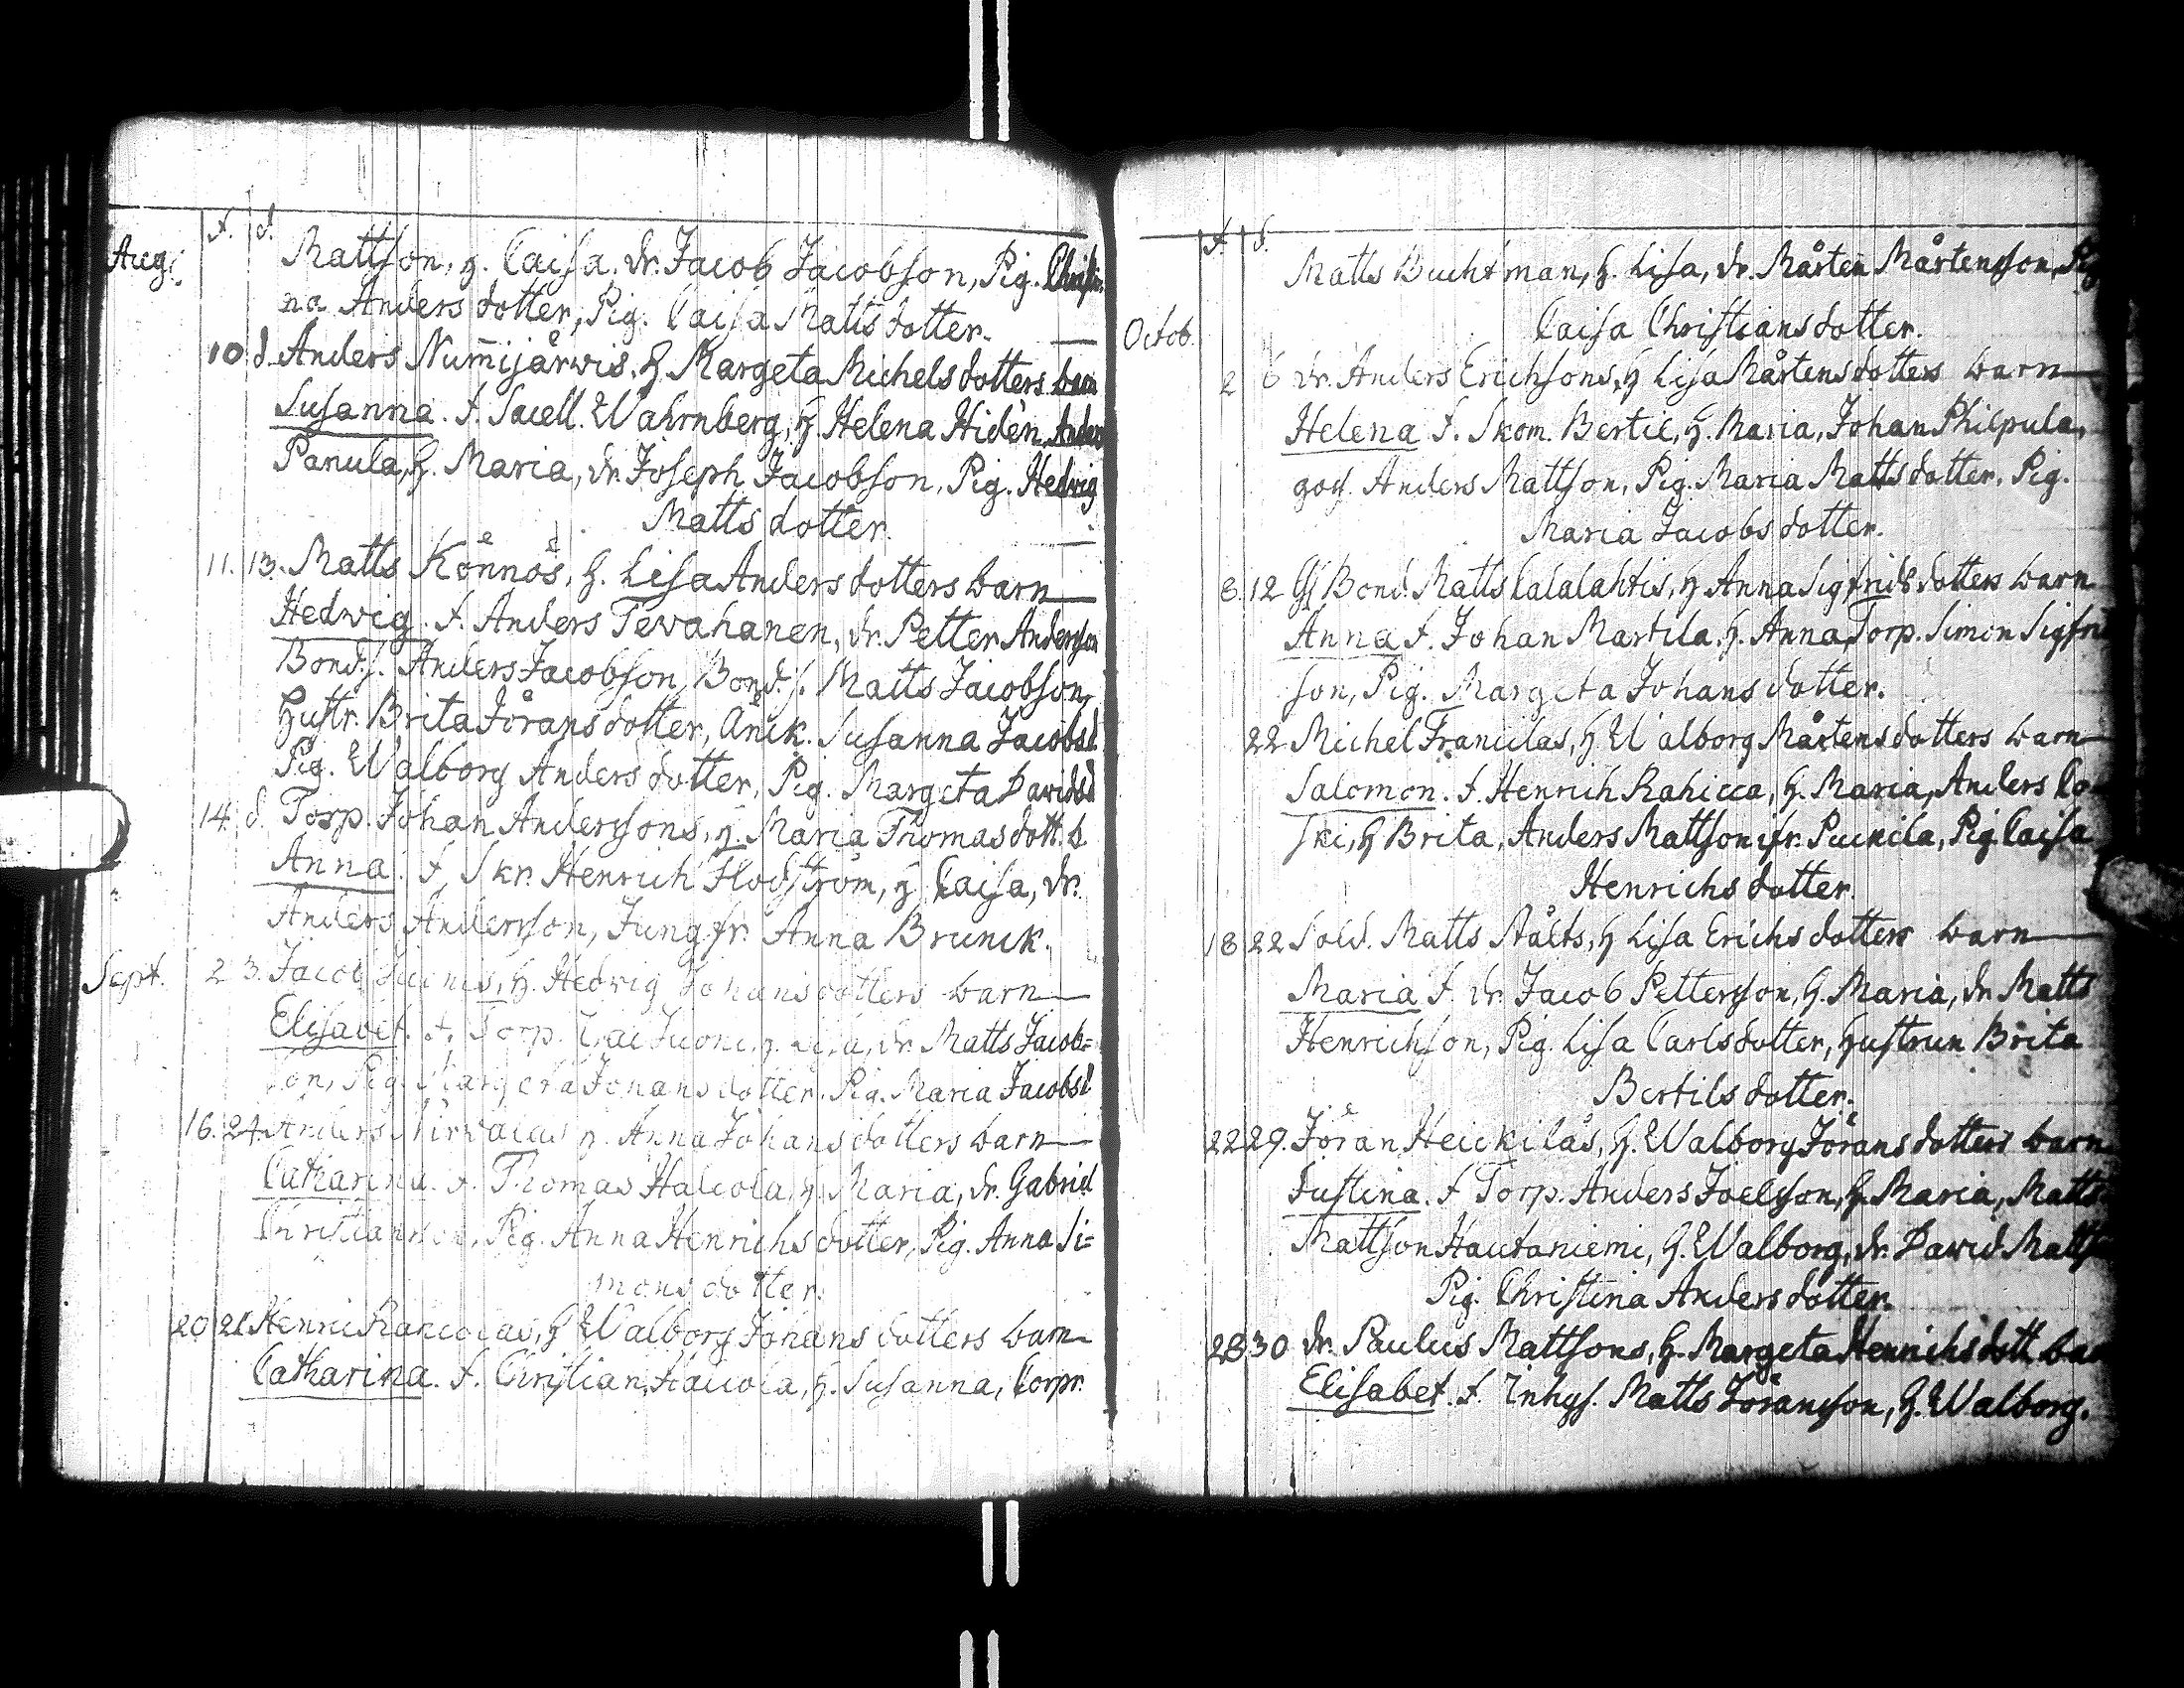 f. d.
Aug. Mattson, h. Caisa, dr. Jacob Jacobson, Pig. Christi-
na Andersdotter, Pig. Caisa Mattsdotter.
10 d. Anders Num̅ijärwis, H. Margeta Michelsdotters barn
Susanna. f. Sacell. Wahrnberg, H. Helena Hiden, Anders
Panula, H. Maria, dr. Joseph Jacobson, Pig. Hedvig
Matts dotter.
11. 13. Matts Könnös, H. Lisa Andersdotters barn
Hedwig. f. Anders Tevahanen, dr. Petter Andersson
Bond.s. Anders Jacobson, Bond.s. Matts Jacobson,
Hustr. Brita Jöransdotter, Änk. Susanna Jacobsd.
Pig. Walborg Andersdotter, Pig. Margeta Davidsd
14. d. Torp. Johan Anderssons, h. Maria Thomasdott. b
Anna. f. Skr. Henrich Flodström, h Caisa, dr.
Anders Andersson, Jungfr. Anna Brunck.
Sept. 2 3. Jacob, H. Hedvig Johansdotters barn
Elisabet. f. Torp. h. Lisa, dr. Matts Jacob=
son, Pig. Margeta Johansdotter. Pig. Maria Jacobsd
16. 24. Anders h. Anna Johansdotters barn
Catharina. f. Thomas Halcola, h. Maria, dr. Gabriel
Christianson, Pig. Anna Henrichsdotter, Pig. Anna Si=
monsdotter.
20 21. H Walborg Johansdotters barn
Catharina. f. Christian, H. Susanna, Corpr.
f. d.
Matts Buchtman, H. Lisa, dr. Mårten Mårtensson, Pig
Caisa Christiansdotter.
Octob. 2 6 dr. Anders Erichsons, H Lisa Mårtensdotters barn
Helena f. Skom. Bertil, H. Maria, Johan Philpula,
goss. Anders Mattson, Pig. Maria Mattsdotter, Pig.
Maria Jacobsdotter.
8. 12 Bond. Matts Calalahtis, H Anna Sigfridsdotters barn
Anna f. Johan Martila, H. Anna, Torp. Simon Sigfrid
son, Pig. Margeta Johansdotter.
22 Michel Francilas, H Walborg Mårtensdotters barn
Salomon. f. Henrich Rahicca, H. Maria, Anders Co-
ski, H Brita, Anders Mattson ifr. Punila, Pig. Caisa
Henrichsdotter.
18 22 Sold. Matts, H Lisa Erichsdotters barn
Maria f. dr. Jacob Pettersson, H. Maria, dr. Matts
Henrichson, Pig. Lisa Carlsdotter, Hustrun Brita
Bertilsdotter.
22 29. Jöran Heickiläs, H. Walborg Jöransdotters barn
Justina. f Torp. Anders Joelsson, H. Maria, Matts
Mattson Hautaniemi, H. Walborg, dr. David Matts
Pig. Christina Andersdotter.
28 30 dr. Paulus Mattsons, H. Margeta Henrichsdott. bar
Elisabet. f. Inhys. Matts Jöransson, H. Walborg.